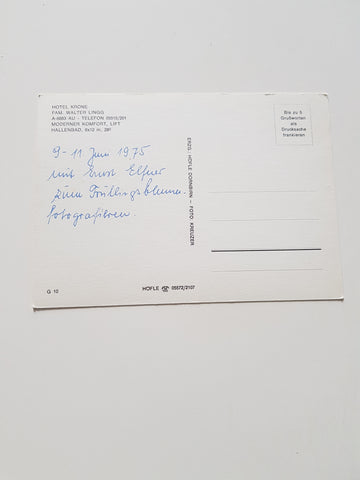 HOTEL KRONE
FAM. WALTER LINGG
A-6883 AU - TELEFON 05515/201
MODERNER KOMFORT, LIFT
HALLENBAD, 6x12 m, 28°
Bis zu 5
Grußworten
als
Drucksache
frankieren
9-11 Juni 1975
mit Ernst Elsner
zum Frühlingsblumen
fotografieren.
ERZG.: HÖFLE DORNBIRN - FOTO KREUZER
G 10
HÖFLE 05572/2107